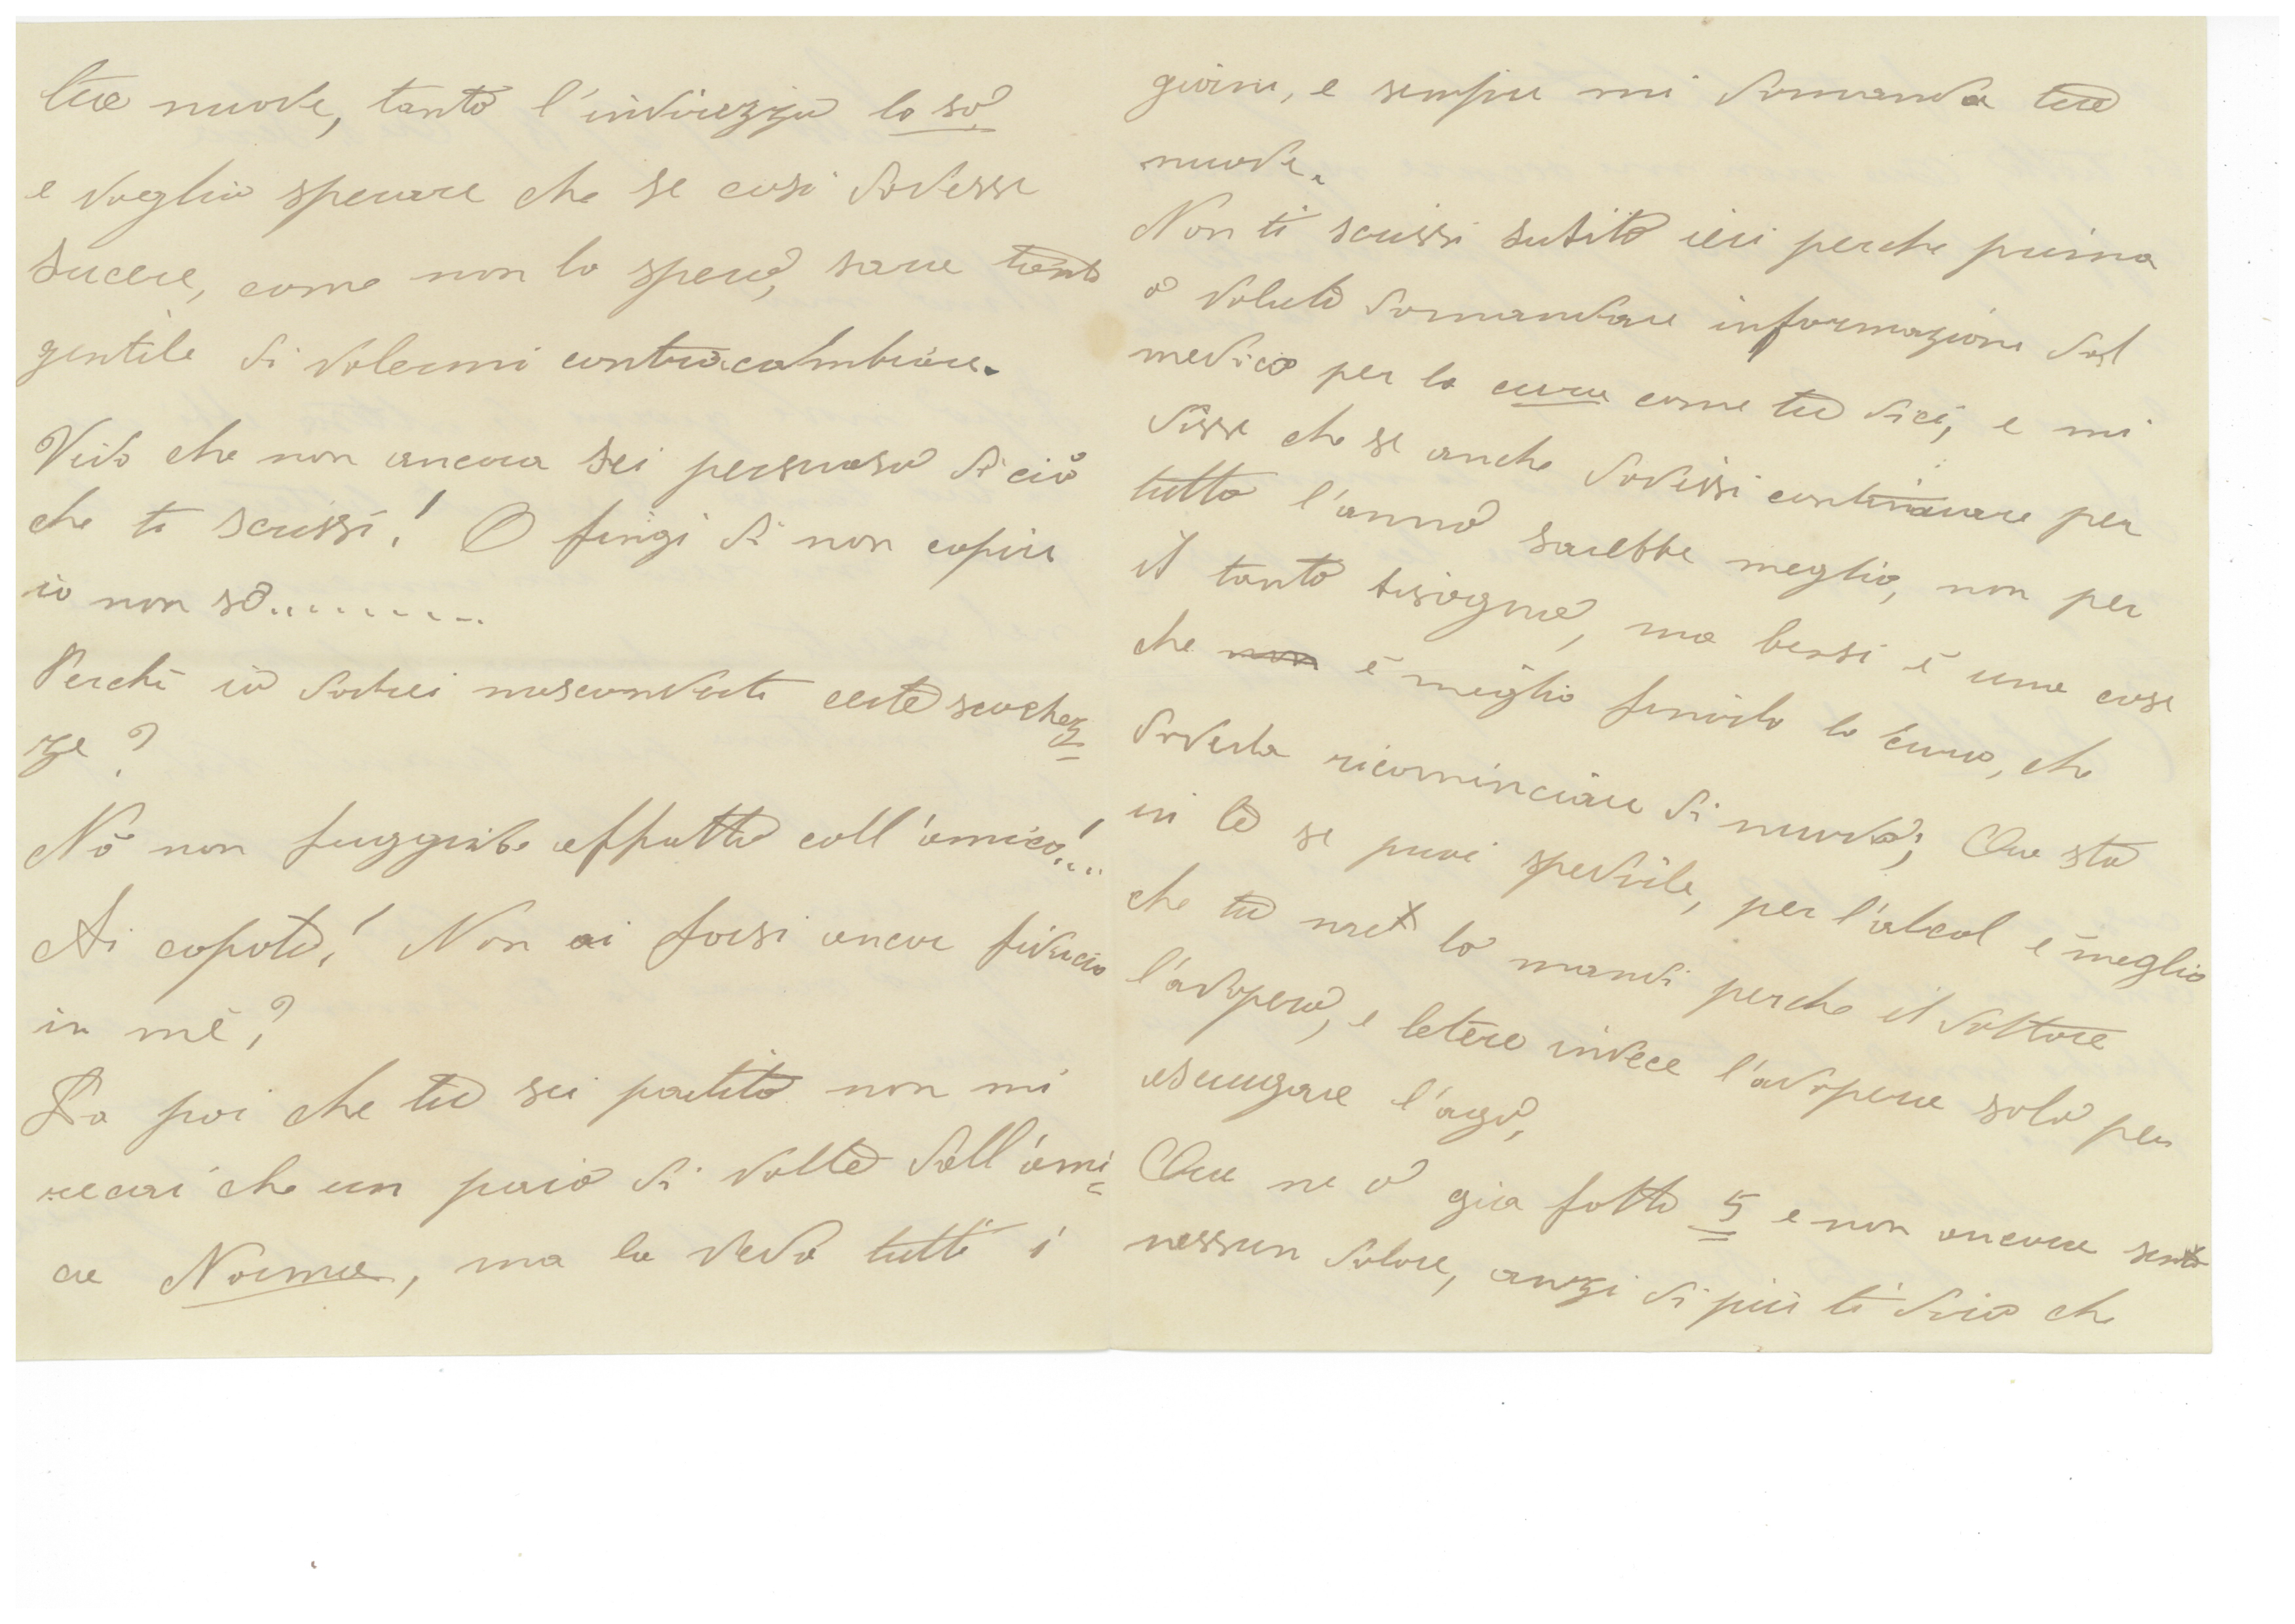 tue nuove, tanto l'indirizzo lo so
e voglio sperare che se cosi dovesse
sucere, come non lo spero, sarai tanto
gentile di volermi contracambiare.
Vedo che non ancora sei persuaso di ciò
che ti scrissi! O fingi di non capire
io non sò.........
Perchè io dovrei nasconderti certe sciochez
ze?
Nò non fuggirebe affatto coll'amico!...
Ai capito! Non ai forsi ancor fiducia
in mè?
Da poi che tu sei partito non mi
recai che un paio di volte dall'ami=
ca Norma, ma la vedo tutti i
giorni, e sempre mi domanda tue
nuove.
Non ti scrissi subito ieri perche prima
ò voluto domandare informazioni dal
medico per la cura come tu dici, e mi
disse che se anche dovessi continuare per
tutto l'anno sarebbe meglio, non per
il tanto bisogno, ma bensi è una cosa
che non è meglio finirla la cura, che
doverla ricominciare di nuovo; Ora sta
in te se puoi spedirle, per l'alcol è meglio
che tu me lo mandi perche il dottore
l'adopera, e letere invece l'adopera solo per
asciugare l'ago,
Ora ne ò gia fatto 5 e non ancora sento
nessun dolore, anzi di più ti dirò che